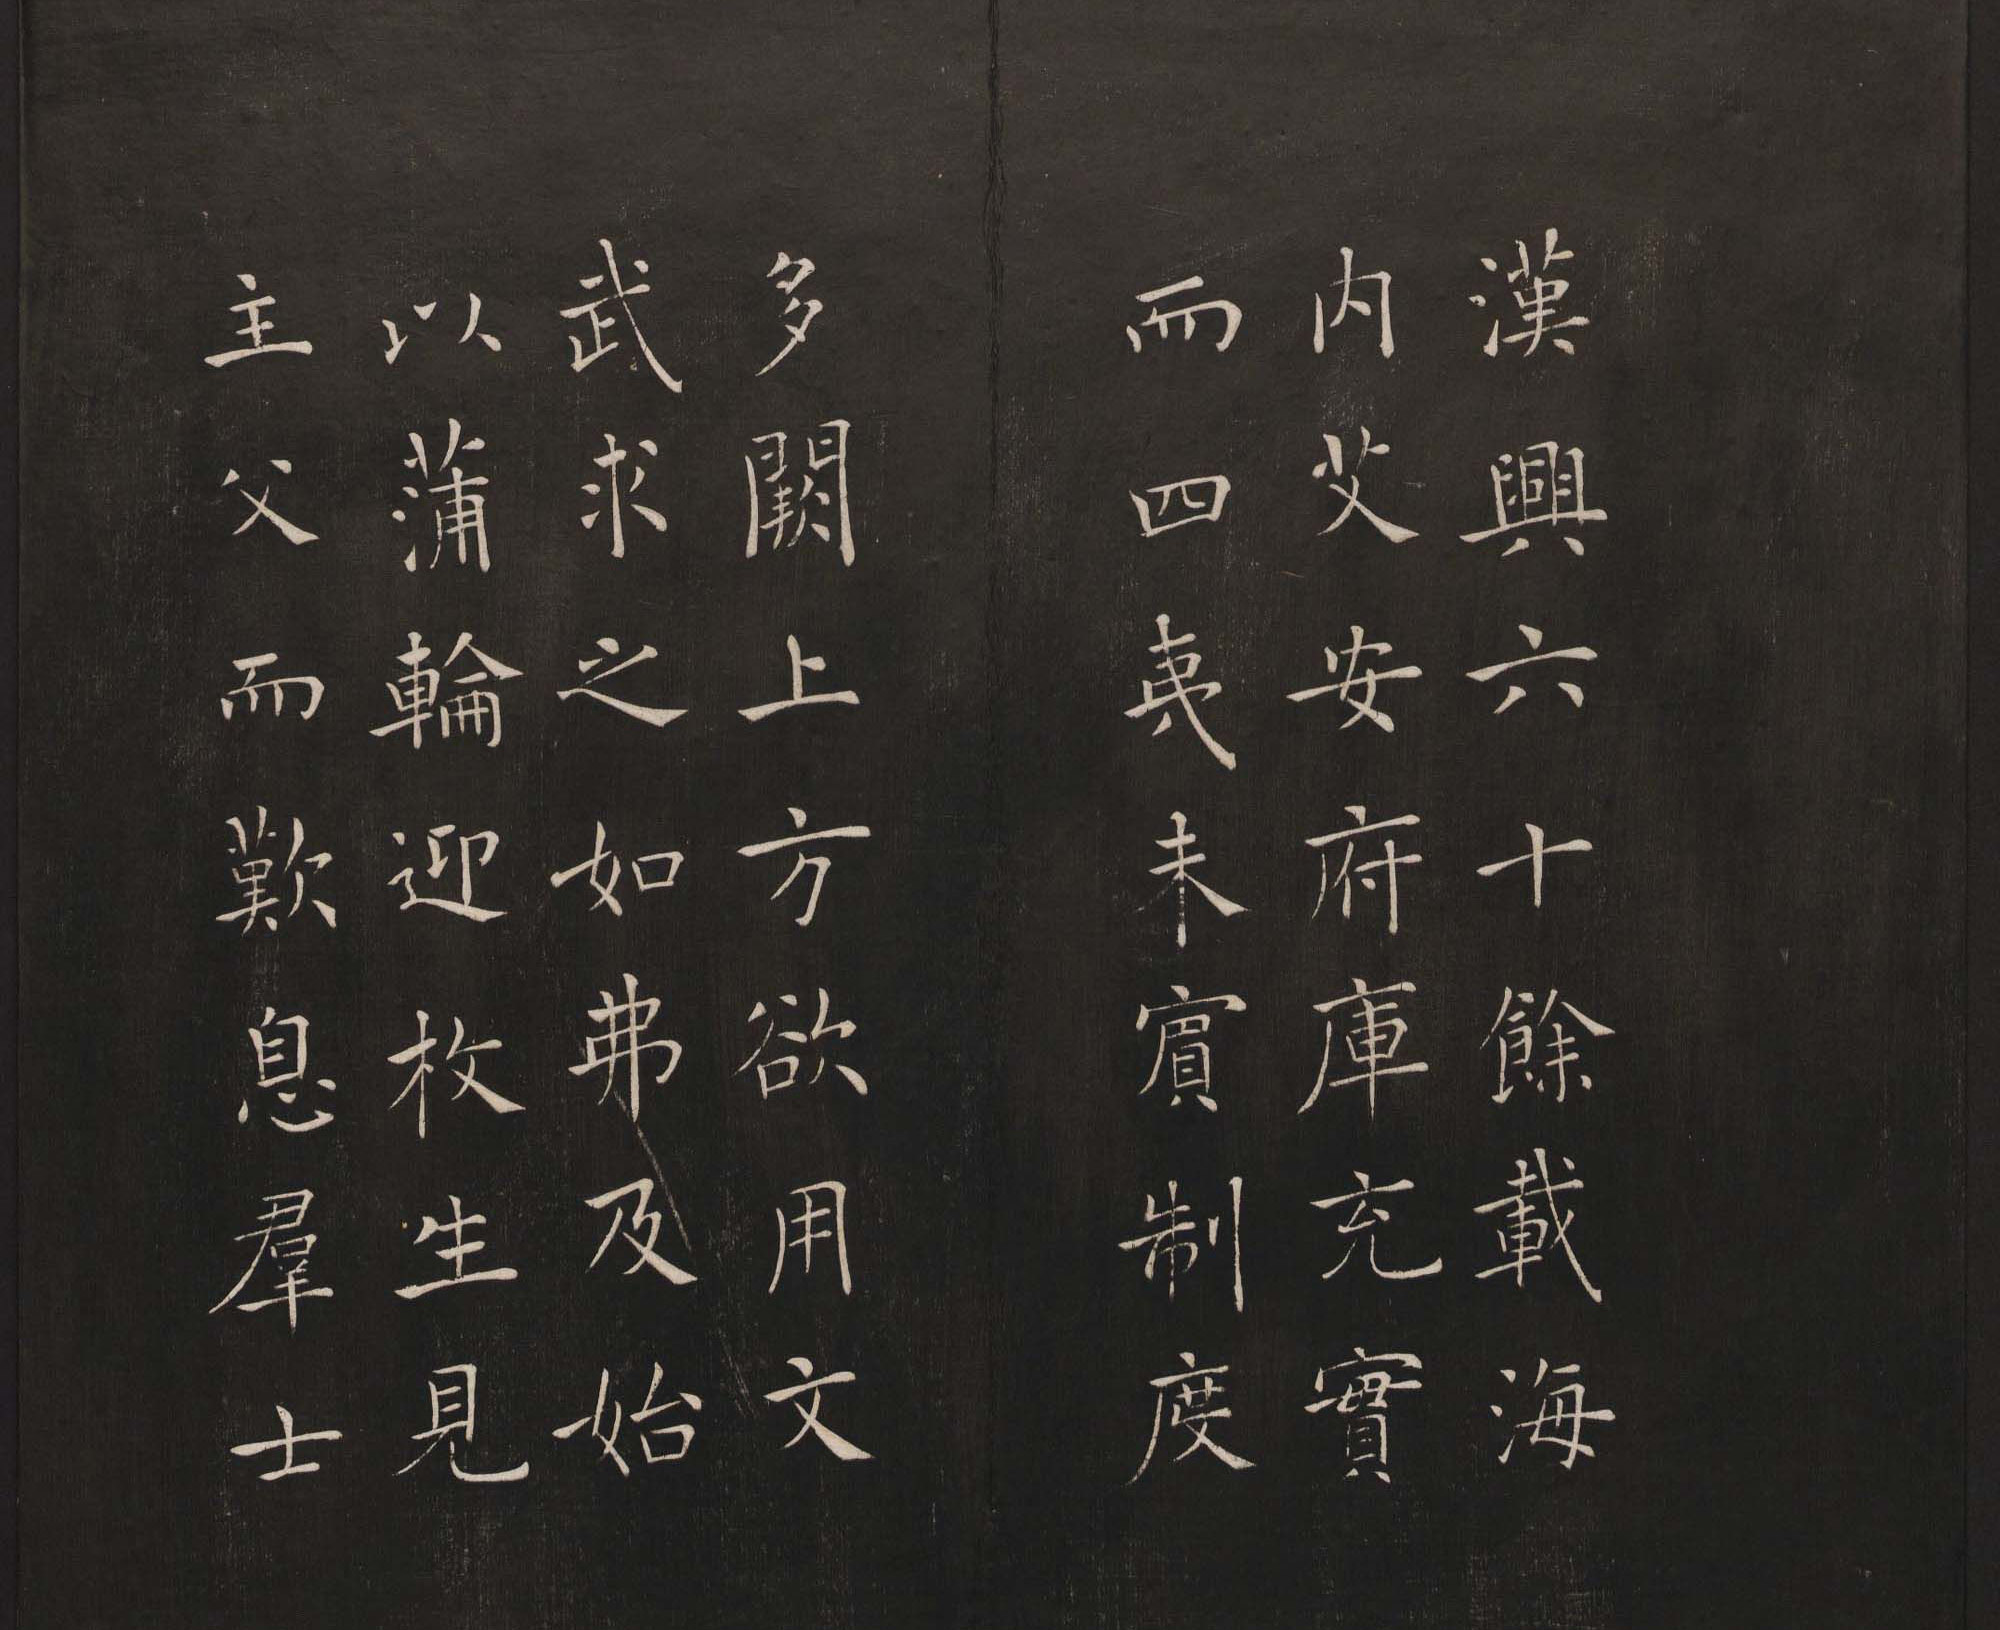 漢興六十餘載海
内艾安府庫充實
而四夷未賓制度
多闕上方欲用文
武求之如弗及始
以蒲輪迎枚生見
主父而歎息羣士